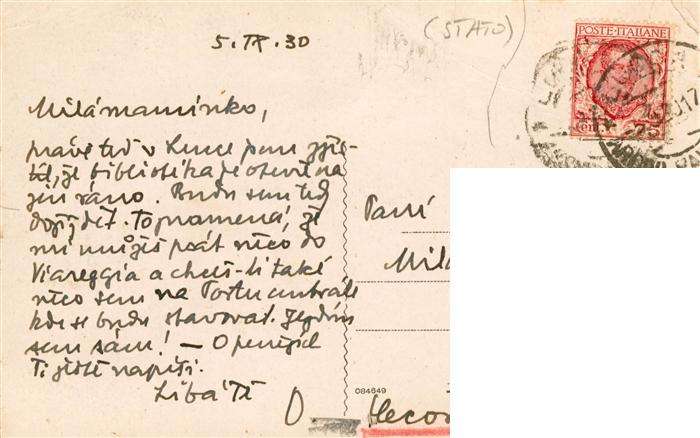 5. IX. 30
(STATO)
POSTE·ITALIANE
75
Milá maminko,
právě teď v Lucce jsem zjis-
til, že bibliotéka je otevřena
jen ráno. Budu sem tedy
dojíždět. To znamená, že
mi můžeš psát něco do
Viareggia a chceš-li také
něco sem na
kde se budu stavovat. Jezdím
sem sám! — O penězích
Ti ještě napíši.
Líbá Tě
Paní
Mil
084649